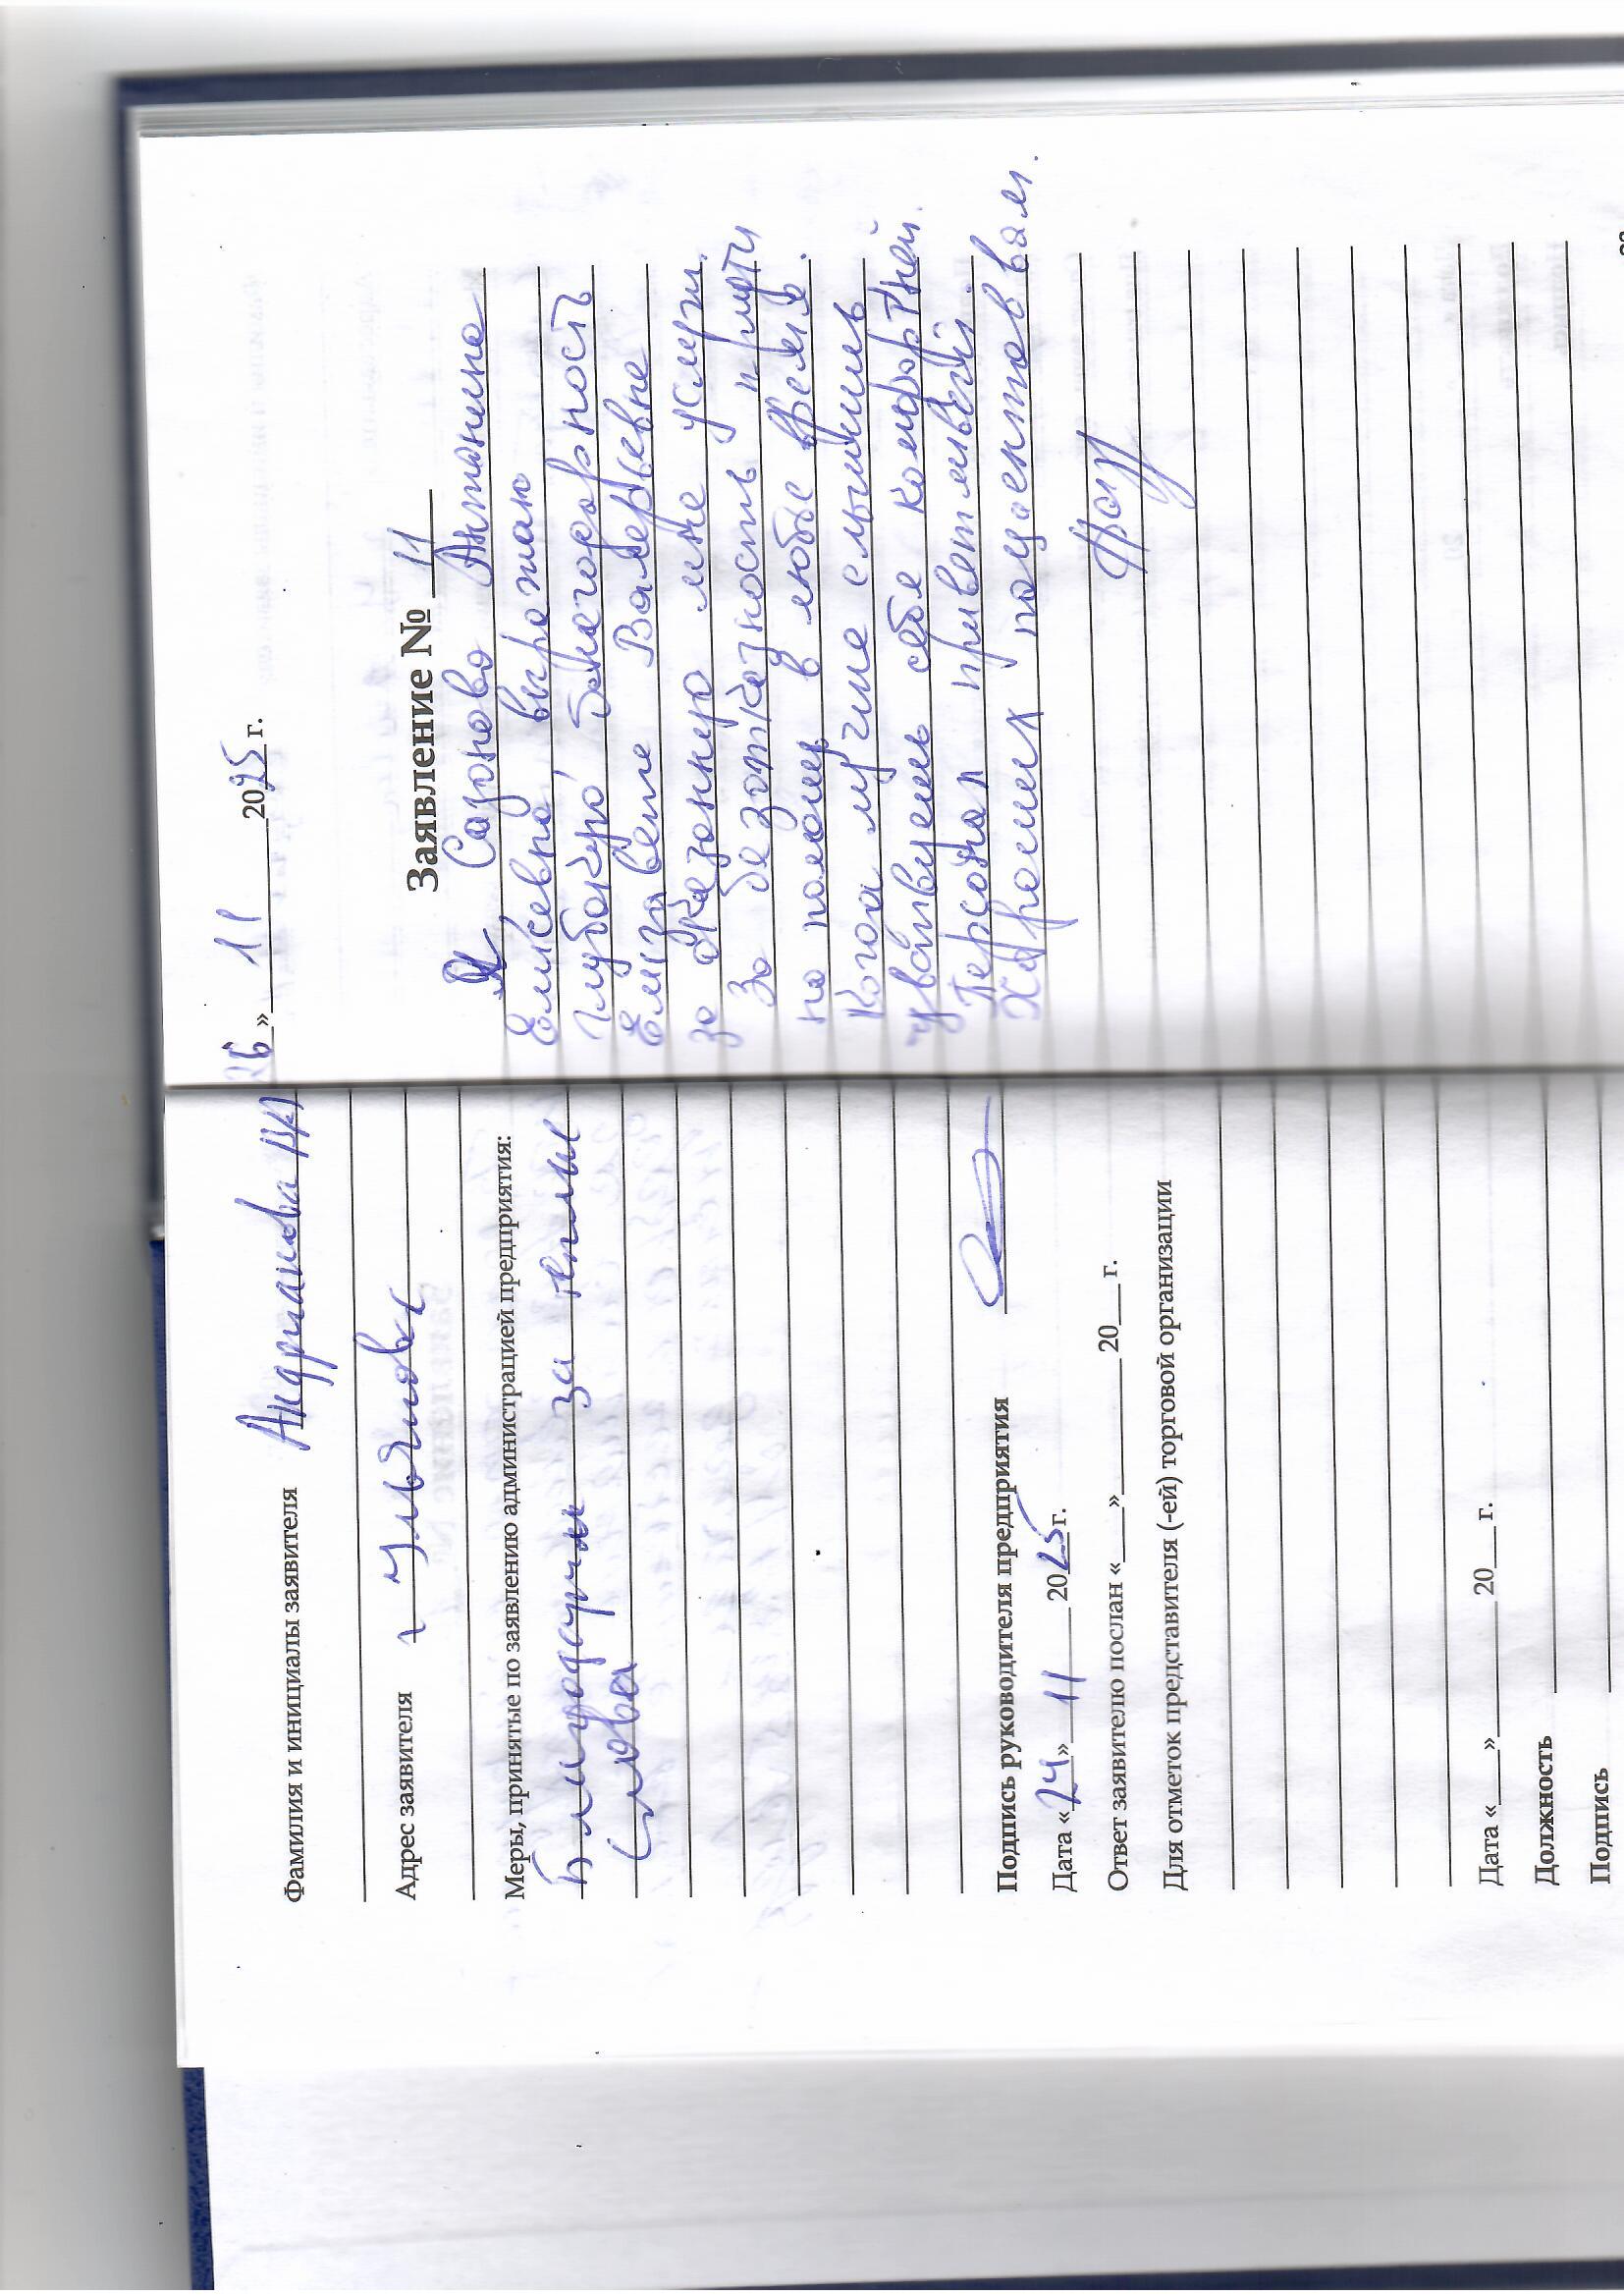 Фамилия и инициалы заявителя Андрианова
Адрес заявителя г Ульяновск
Меры, принятые по заявлению администрацией предприятия:
Благодарим за теплые
слова
Подпись руководителя предприятия
Дата «24» 11 2025 г.
Ответ заявителю послан «___» ______ 20___ г.
Для отметок представителя (-ей) торговой организации
Дата «___» ______ 20___ г.
Должность
Подпись
26 » 11 2025 г.
Заявление № 11
Я Сазонова Антонина
Елисевна, выражаю
глубокую благодарность
Елизавете Валерьевне
за оказанную мне услуги.
За безотказность прийти
на помощ в любое время.
Когда лучше слышишь
чувствуешь себе комфортней.
Персонал приветливый
Хороших пациентов вам.